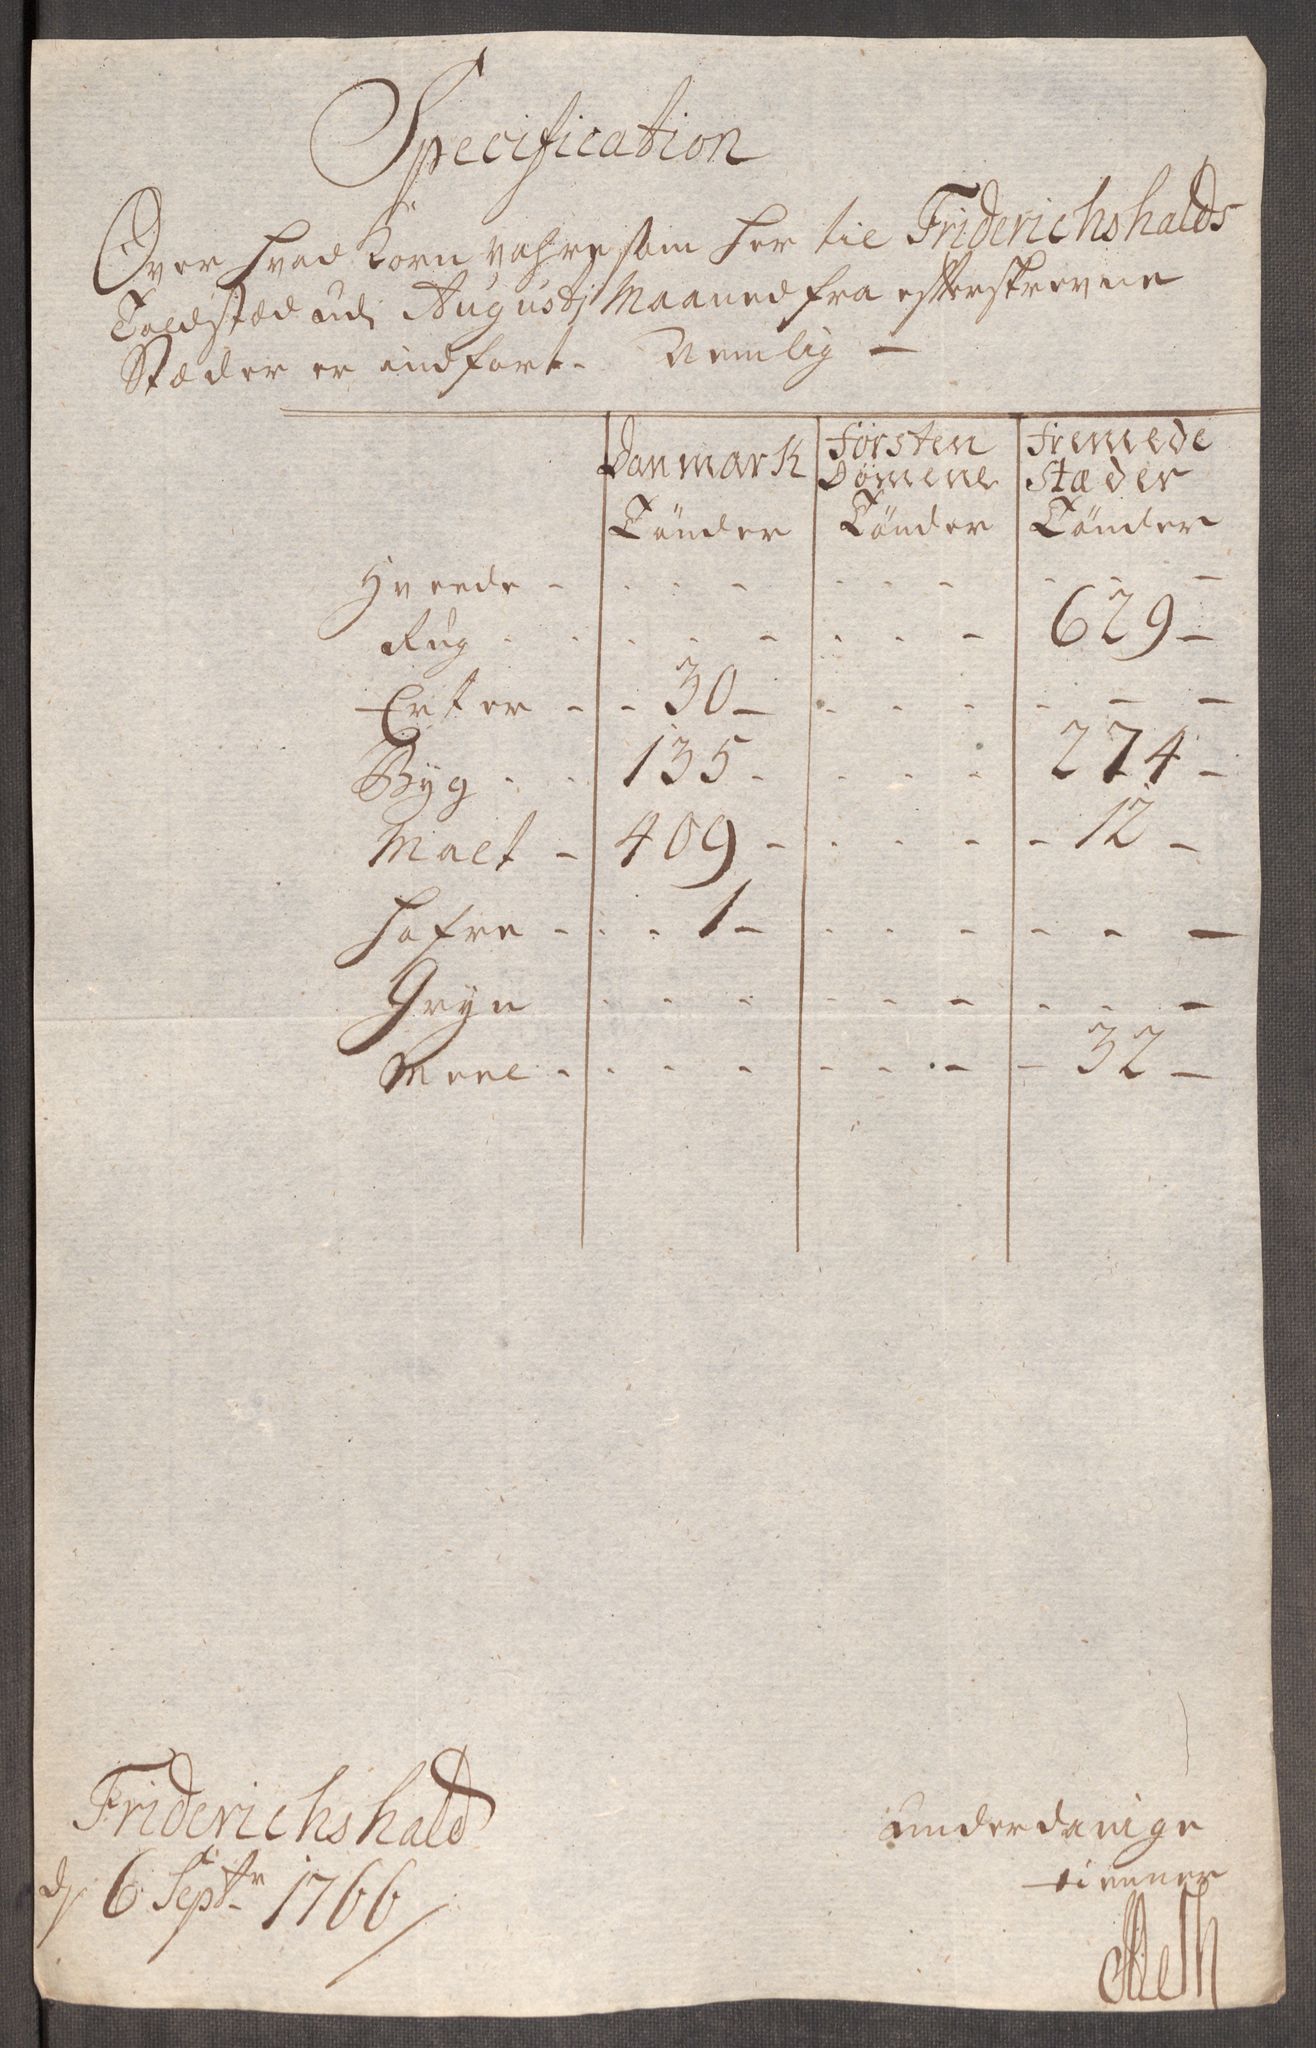 Specification
Over hvad Korn vahre som her til Friderichshalds
Toldstæd udi Augustj Maaned fra efterskrevne
Stæder er indført. Nemlig —
Danmark Förften Fremede
Dömene Stæder
Tönder Tönder Tönder
Hveede - . . - . . - - . -
Rug . . . . - . . - 629 -
Erter - - 30 - . . . - - - -
Byg . . 135 - . . . - 274 -
Malt - 409 - . . - - - 12 -
Hafre - . . 1 - . . - - - - -
Gryn . . - - - - - . . -
Meel - . . - - - - . - - 32 -
Friderichshald
d 6 Septr 1766
underdanige
tienner